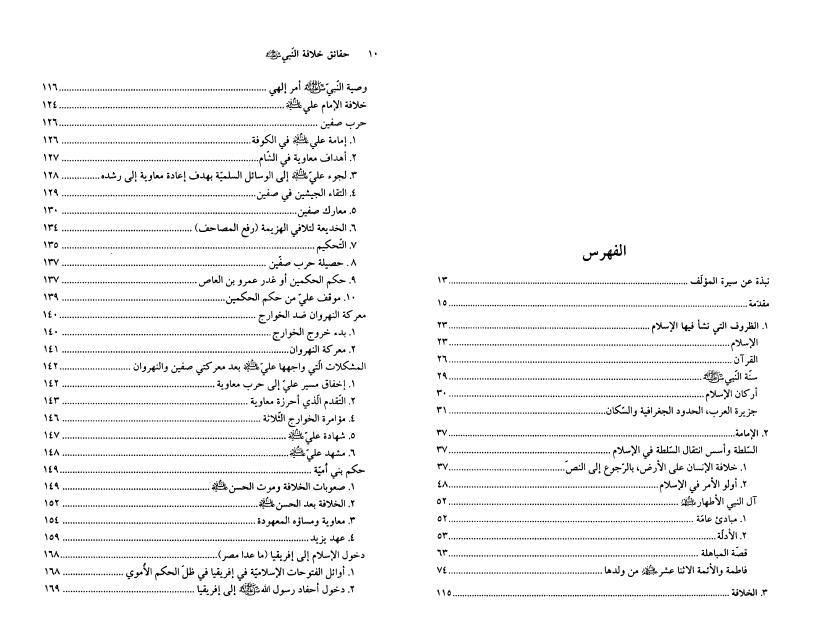 الفهرس
نبذة عن سيرة المؤلّف ١٣
مقدّمة ١٥
١. الظروف التي نشأ فيها الإسلام ٢٣
الإسلام ٢٣
القرآن ٢٦
سنّة النّبيّ ﷺ ٢٩
أركان الإسلام ٣٠
جزيرة العرب، الحدود الجغرافية والسّكان ٣١
٢. الإمامة ٣٧
السّلطة وأسس انتقال السّلطة في الإسلام ٣٧
١. خلافة الإنسان على الأرض، بالرّجوع إلى النصّ ٣٧
٢. أولو الأمر في الإسلام ٤٨
آل النبي الأطهار ٥٢
١. مبادئ عامّة ٥٢
٢. الأدلّة ٥٣
قصّة المباهلة ٦٣
فاطمة والأئمة الاثنا عشر من ولدها ٧٤
٣. الخلافة ١١٥
١٠ حقائق خلافة النّبي ﷺ
وصية النّبيّ ﷺ أمر إلهي ١١٦
خلافة الإمام علي ١٢٤
حرب صفين ١٢٦
١. إمامة علي في الكوفة ١٢٦
٢. أهداف معاوية في الشّام ١٢٧
٣. لجوء عليّ إلى الوسائل السلميّة بهدف إعادة معاوية إلى رشده ١٢٨
٤. التقاء الجيشين في صفين ١٢٩
٥. معارك صفين ١٣٠
٦. الخديعة لتلافي الهزيمة (رفع المصاحف) ١٣٤
٧. التّحكيم ١٣٥
٨. حصيلة حرب صفّين ١٣٧
٩. حكم الحكمين أو غدر عمرو بن العاص ١٣٧
١٠. موقف عليّ من حكم الحكمين ١٣٩
معركة النهروان ضد الخوارج ١٤٠
١. بدء خروج الخوارج ١٤٠
٢. معركة النهروان ١٤١
المشكلات الّتي واجهها عليّ بعد معركتي صفين والنهروان ١٤٢
١. إخفاق مسير عليّ إلى حرب معاوية ١٤٢
٢. التّقدم الّذي أحرزة معاوية ١٤٣
٤. مؤامرة الخوارج الثّلاثة ١٤٦
٥. شهادة عليّ ١٤٧
٦. مشهد عليّ ١٤٨
حكم بني أميّة ١٤٩
١. صعوبات الخلافة وموت الحسن ١٤٩
٢. الخلافة بعد الحسن ١٥٢
٣. معاوية ومساؤه المعهودة ١٥٤
٤. عهد يزيد ١٥٩
دخول الإسلام إلى إفريقيا (ما عدا مصر) ١٦٨
١. أوائل الفتوحات الإسلاميّة في إفريقيا في ظلّ الحكم الأموي ١٦٨
٢. دخول أحفاد رسول الله ﷺ إلى إفريقيا ١٦٩